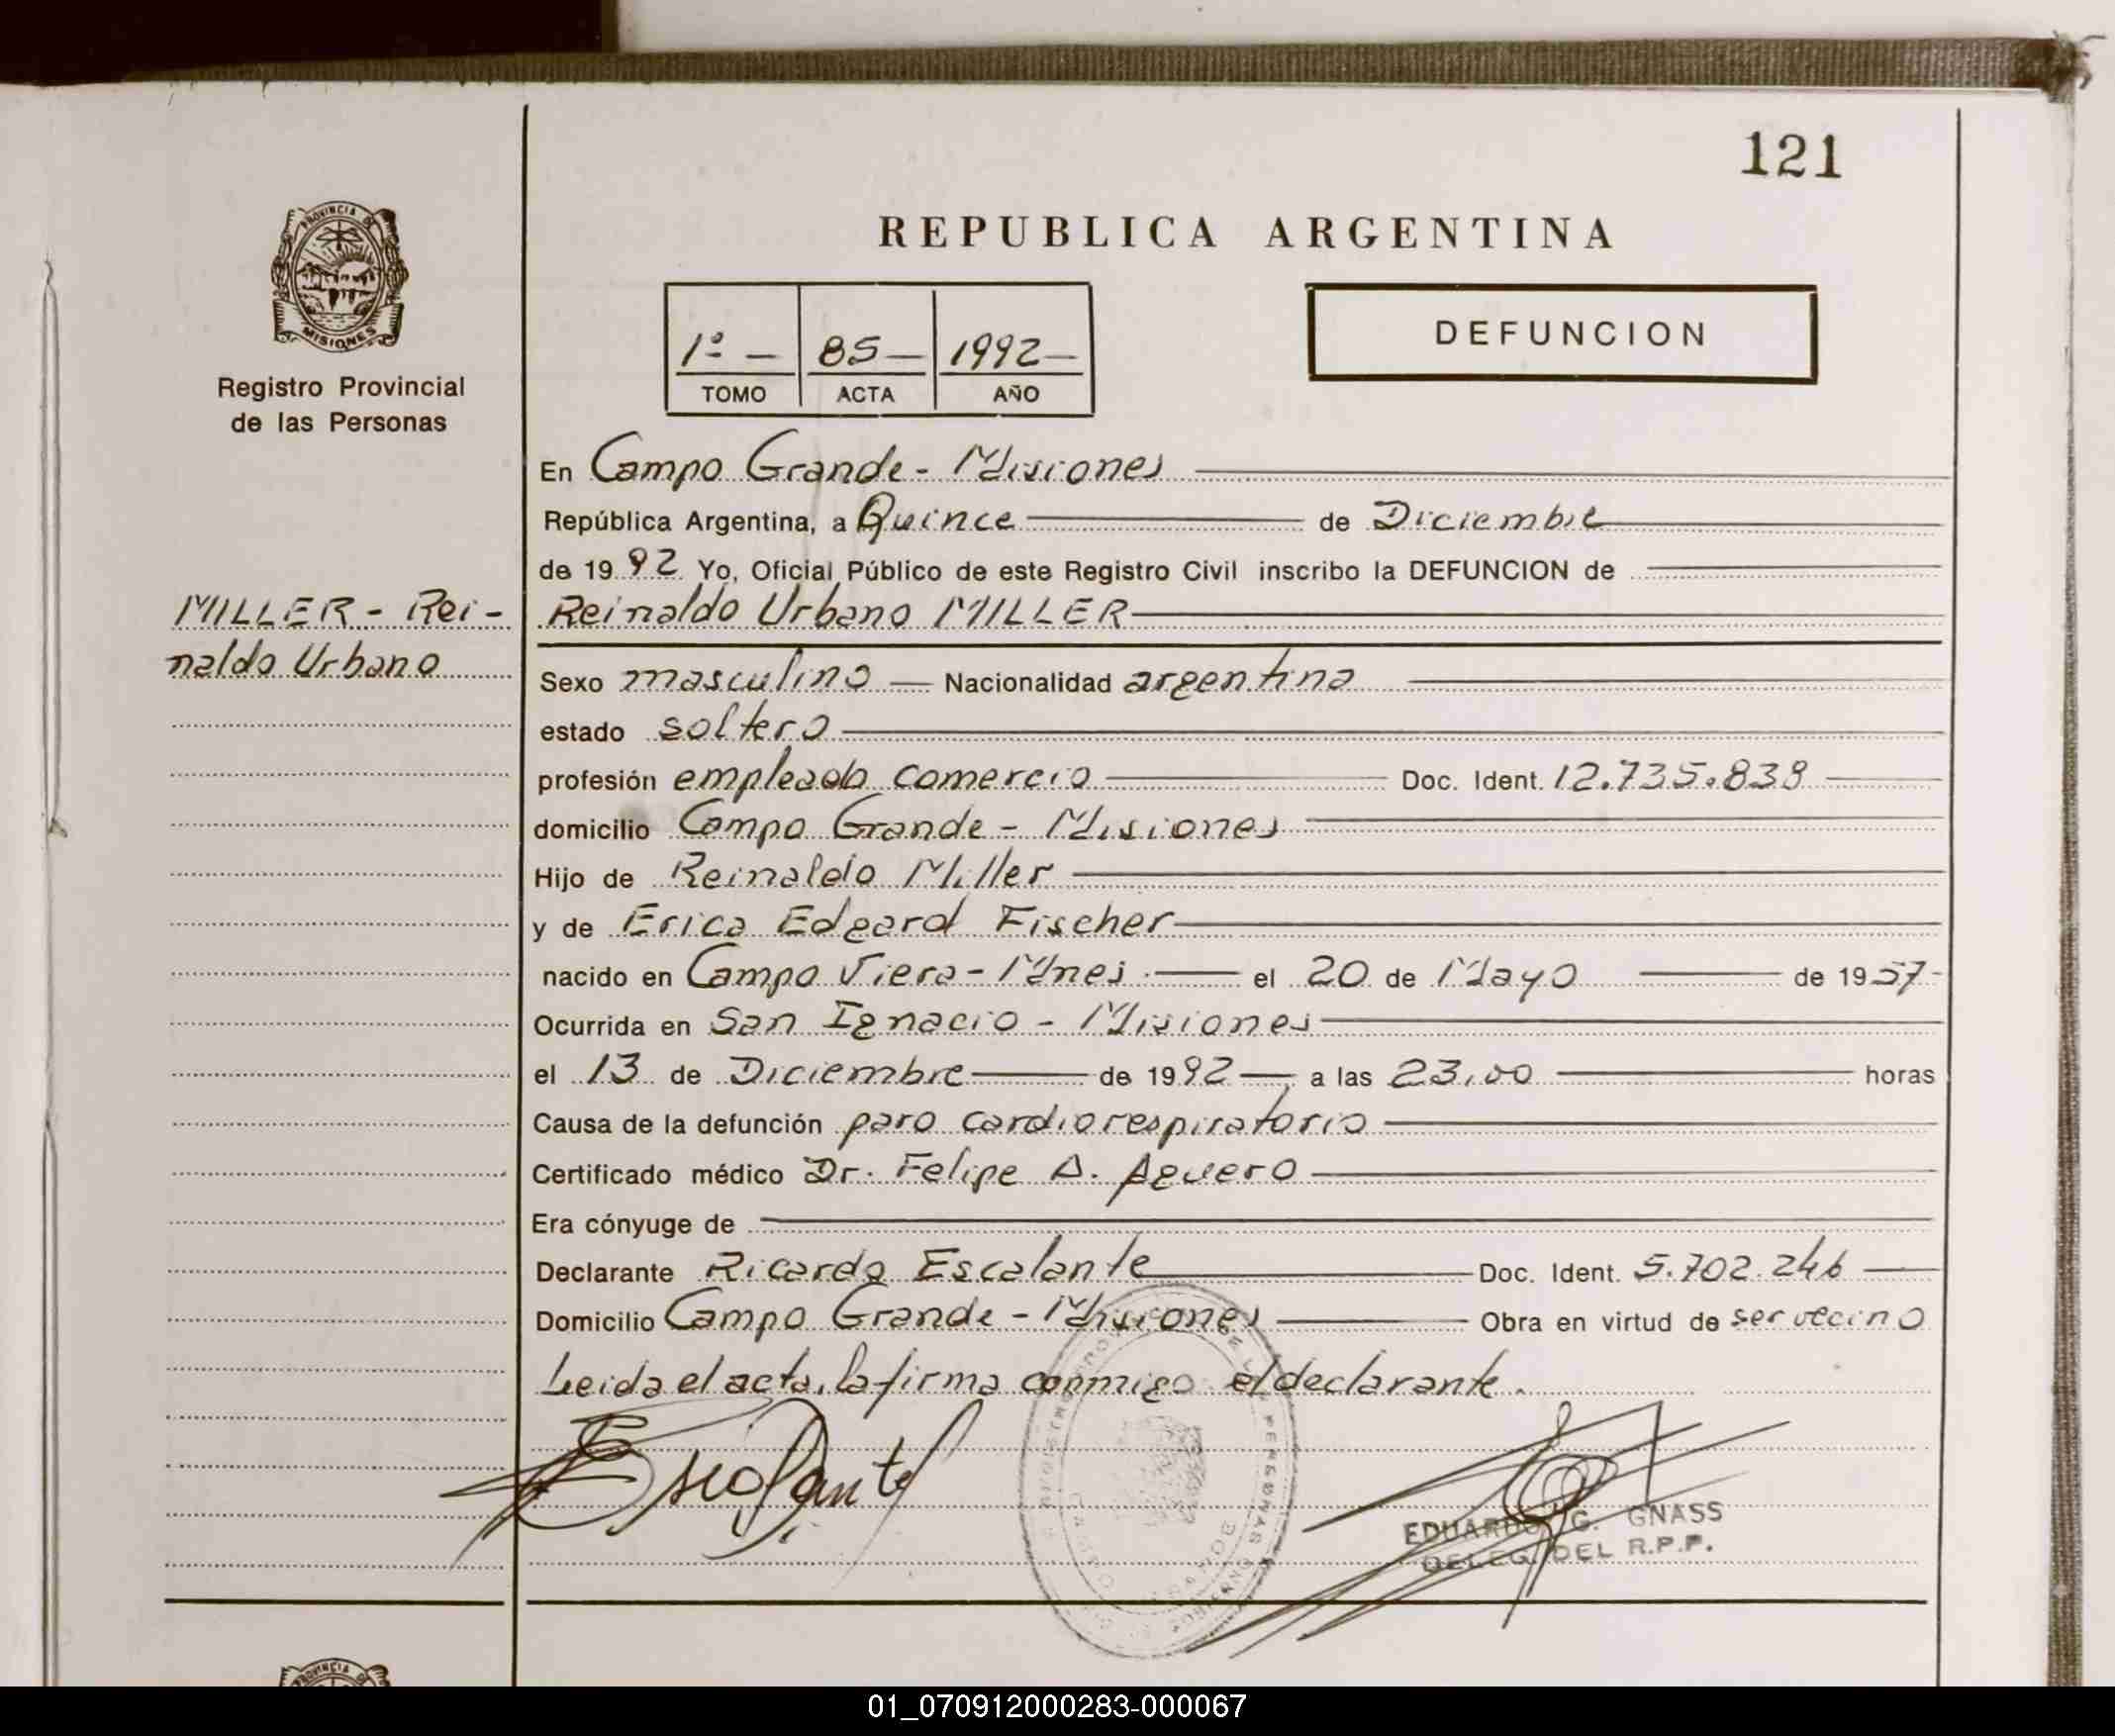 121
PROVINCIA DE
MISIONES
Registro Provincial
de las Personas
REPUBLICA ARGENTINA
1º - 85 - 1992 -
TOMO ACTA AÑO
DEFUNCION
En Campo Grande - Misiones
República Argentina, a Quince de Diciembre
de 1992 Yo, Oficial Público de este Registro Civil inscribo la DEFUNCION de
MILLER - Rei-
naldo Urbano
Reinaldo Urbano MILLER
Sexo masculino - Nacionalidad argentina
estado soltero
profesión empleado comercio Doc. Ident. 12.735.838
domicilio Campo Grande - Misiones
Hijo de Reinaldo Miller
y de Erica Edgard Fischer
nacido en Campo Viera - Mnes el 20 de Mayo de 1957-
Ocurrida en San Ignacio - Misiones
el 13 de Diciembre de 1992, a las 23,00 horas
Causa de la defunción paro cardiorespiratorio
Certificado médico Dr. Felipe A. Aguero
Era cónyuge de
Declarante Ricardo Escalante Doc. Ident. 5.702.246
Domicilio Campo Grande - Misiones Obra en virtud de ser vecino
Leida el acta, la firma conmigo el declarante.
Escalante
EDUARDO G. GNASS
DELEG. DEL R.P.P.
PROVINCIA DE
01_070912000283-000067